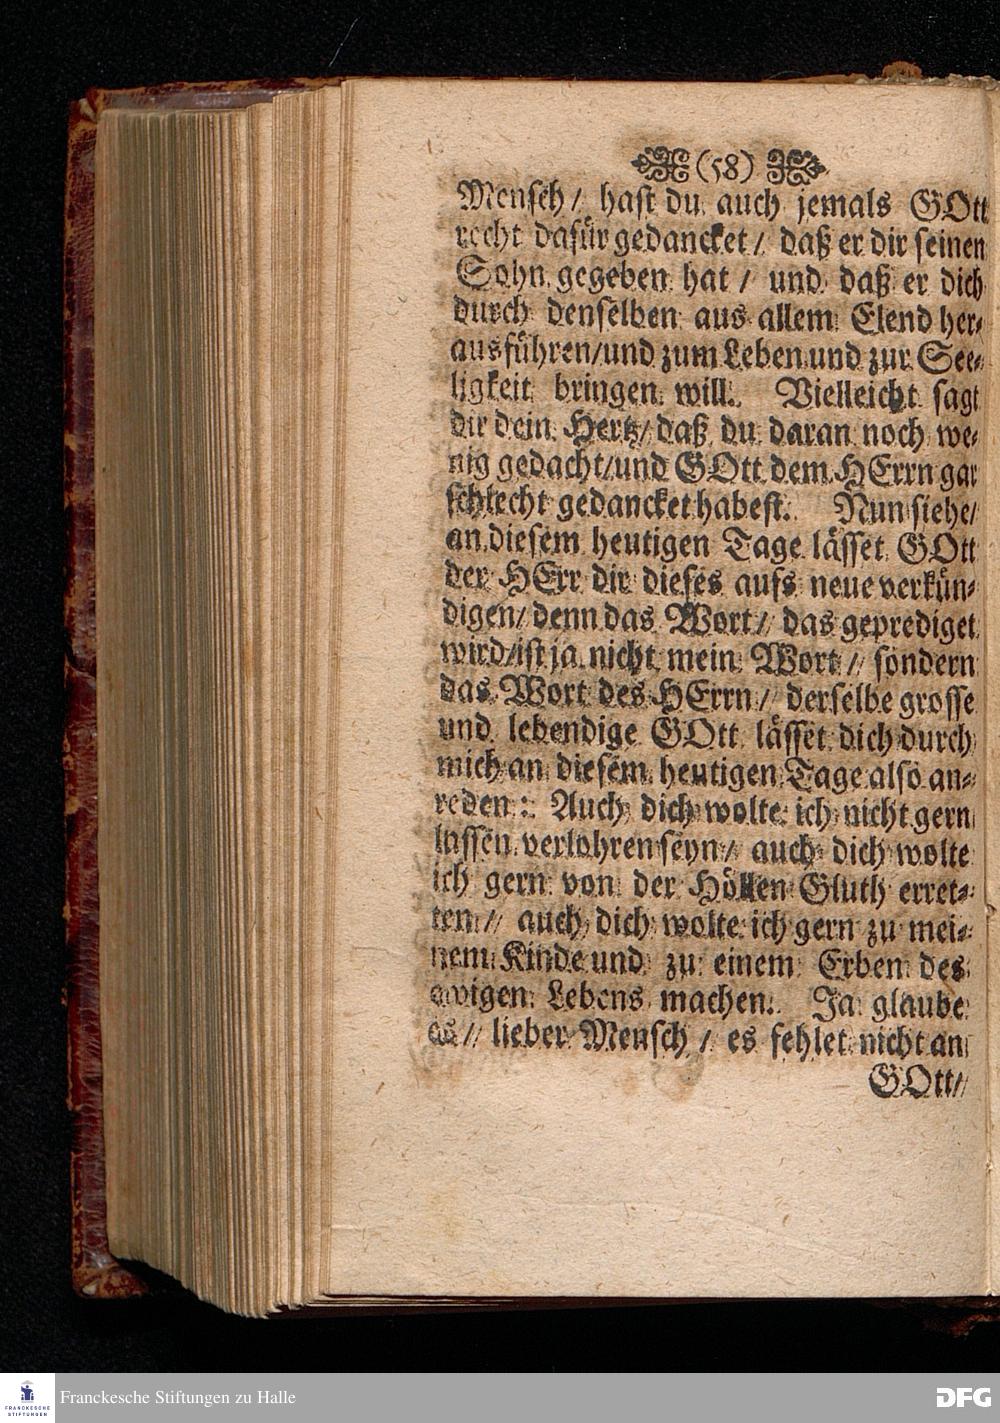 (58)
Mensch / hast du auch jemals GOtt
recht dafür gedancket / daß er dir seinen
Sohn gegeben hat / und daß er dich
durch denselben aus allem Elend her-
ausführen/und zum Leben und zur See-
ligkeit bringen will. Vielleicht sagt
dir dein Hertz/ daß du daran noch we-
nig gedacht/und GOtt dem HErrn gar
schlecht gedancket habest. Nun siehe/
an diesem heutigen Tage lässet GOtt
der HErr dir dieses aufs neue verkün-
digen/ denn das Wort/ das geprediget
wird/ist ja nicht mein Wort / sondern
das Wort des HErrn / derselbe grosse
und lebendige GOtt lässet dich durch
mich an diesem heutigen Tage also an-
reden: Auch dich wolte ich nicht gern
lassen verlohren seyn / auch dich wolte
ich gern von der Höllen Gluth erret-
ten / auch dich wolte ich gern zu mei-
nem Kinde und zu einem Erben des
ewigen Lebens machen. Ja glaube
es / lieber Mensch / es fehlet nicht an
GOtt/
FRANCKESCHE STIFTUNGEN
Franckesche Stiftungen zu Halle
DFG